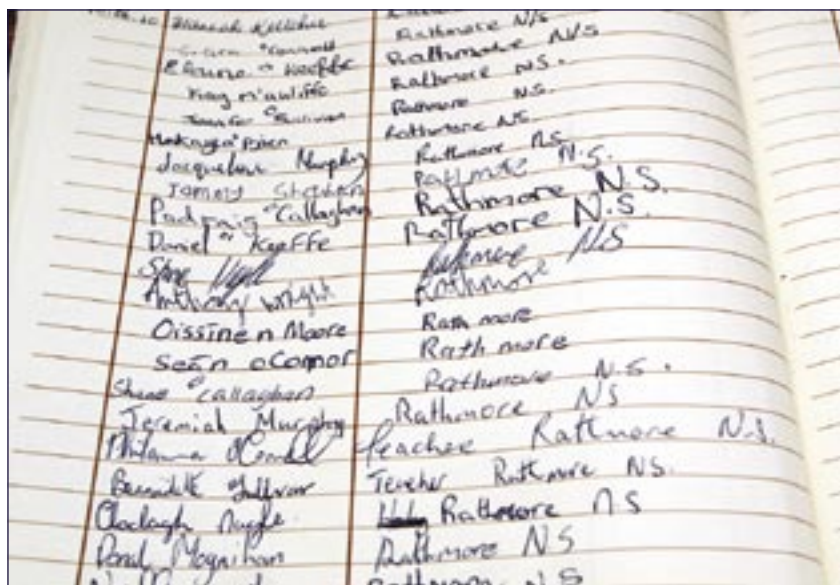 Hannah Kelliher Rathmore N/S
O'Connell Rathmore N/S
O'Keeffe Rathmore N.S.
Kay McAuliffe Rathmore N.S.
O'Sullivan Rathmore N.S.
O'Brien Rathmore N.S.
Jacqueline Murphy Rathmore N.S.
Tommy Rathmore N.S.
Padraig O'Callaghan Rathmore N.S.
Daniel O'Keeffe Rathmore N.S
Shane Rathmore
Anthony Wright
Oissine n Moore Rathmore
Seán oConnor Rathmore
Shane O'Callaghan Rathmore N.S.
Jeremiah Murphy Rathmore NS
O'Connell teacher Rathmore N.S.
Bernadette Sullivan Teacher Rathmore NS.
Clodagh Nagle Rathmore N.S
Donal Moynihan Rathmore NS
Rathmore N.S